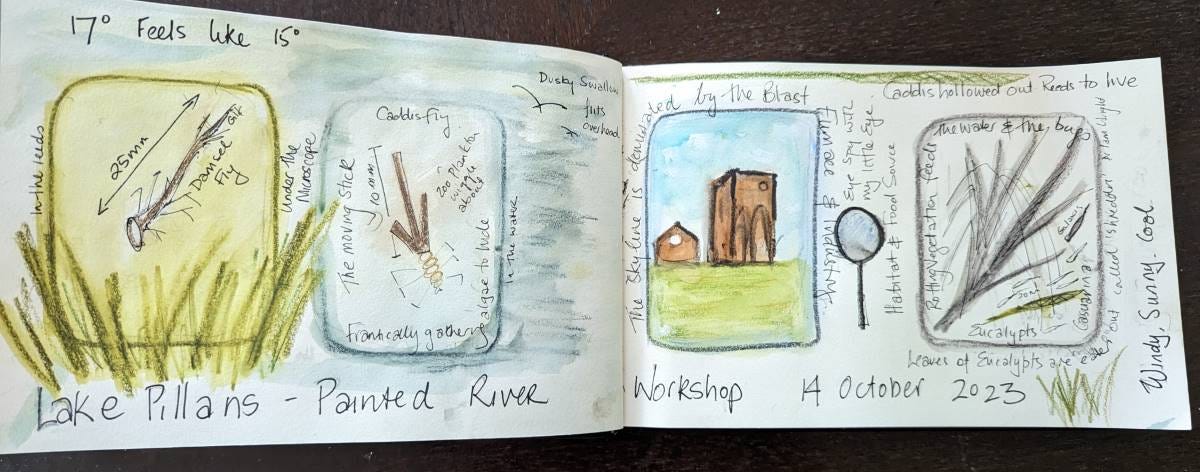 17° Feels like 15°
In the reeds
25mm
Gills
Damsel
Fly
Under the
Microscope
Caddis fly
The moving stick
10mm
200 Plankton
wiggle
about
Frantically gathering
algae to hide
In the water
Dusky Swallow
flits
overhead
The Skyline is dominated by the Blast
Furnace & industry.
Eye Spy with
my little Eye.
Habitat & Food Source
Caddis hollowed out Reeds to live
The water & the bugs
Rotting Vegetation Feeds
Casuarina
Eucalypts
Leaves of Eucalypts are
out called
Windy, Sunny. Cool
Lake Pillans - Painted River Workshop 14 October 2023